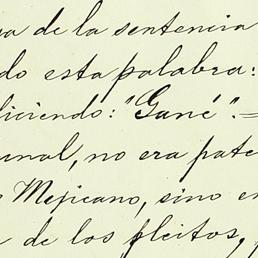 va de la sentencia
do esta palabra:
diciendo: "Gané".=
unal, no era pate
Mejicano, sino en
de los pleitos,